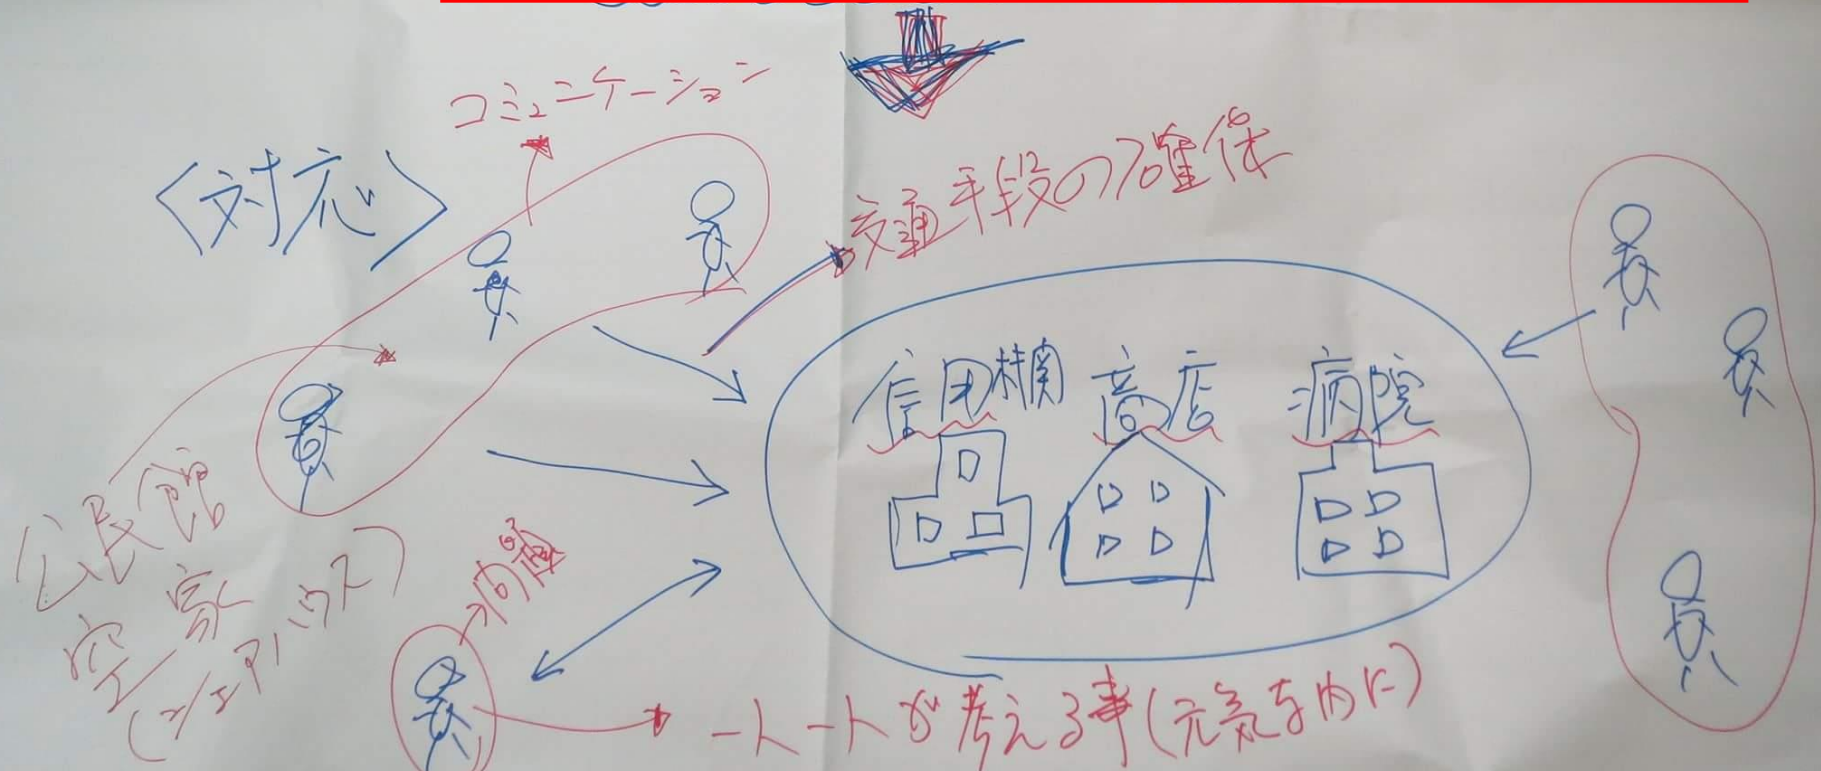 コミュニケーション
<対応>
交通手段の確保
信用機関 商店 病院
公民館
空家
(シェアハウス)
→問題
一人一人が考える事(元気な内に)